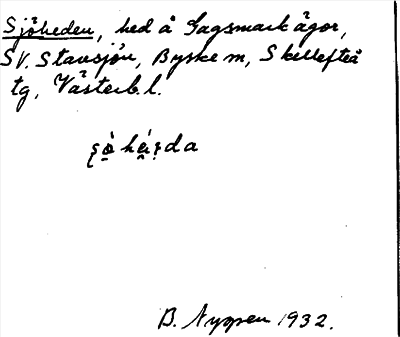 Sjöheden, hed å Gagsmark ägor,
SV. Stavsjön, Byske m, Skellefteå
tg, Västerb. l.
B. Nygren 1932.